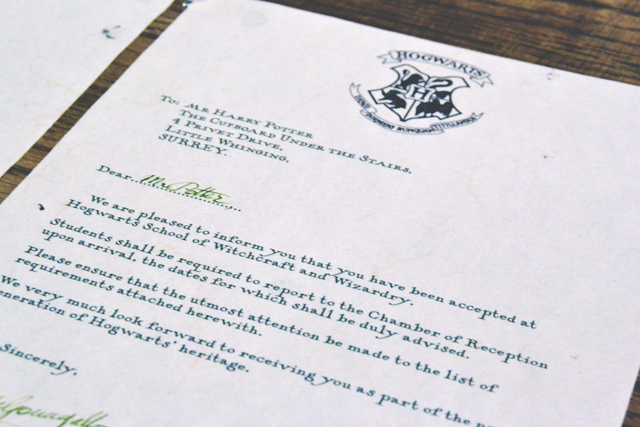 HOGWARTS
To: Mr Harry Potter
The Cupboard Under the Stairs,
4 Privet Drive,
Little Whinging,
SURREY.
Dear...Mr Potter...
We are pleased to inform you that you have been accepted at
Hogwarts School of Witchcraft and Wizardry.
Students shall be required to report to the Chamber of Reception
upon arrival, the dates for which shall be duly advised.
Please ensure that the utmost attention be made to the list of
requirements attached herewith.
We very much look forward to receiving you as part of the
eneration of Hogwarts' heritage.
Sincerely,